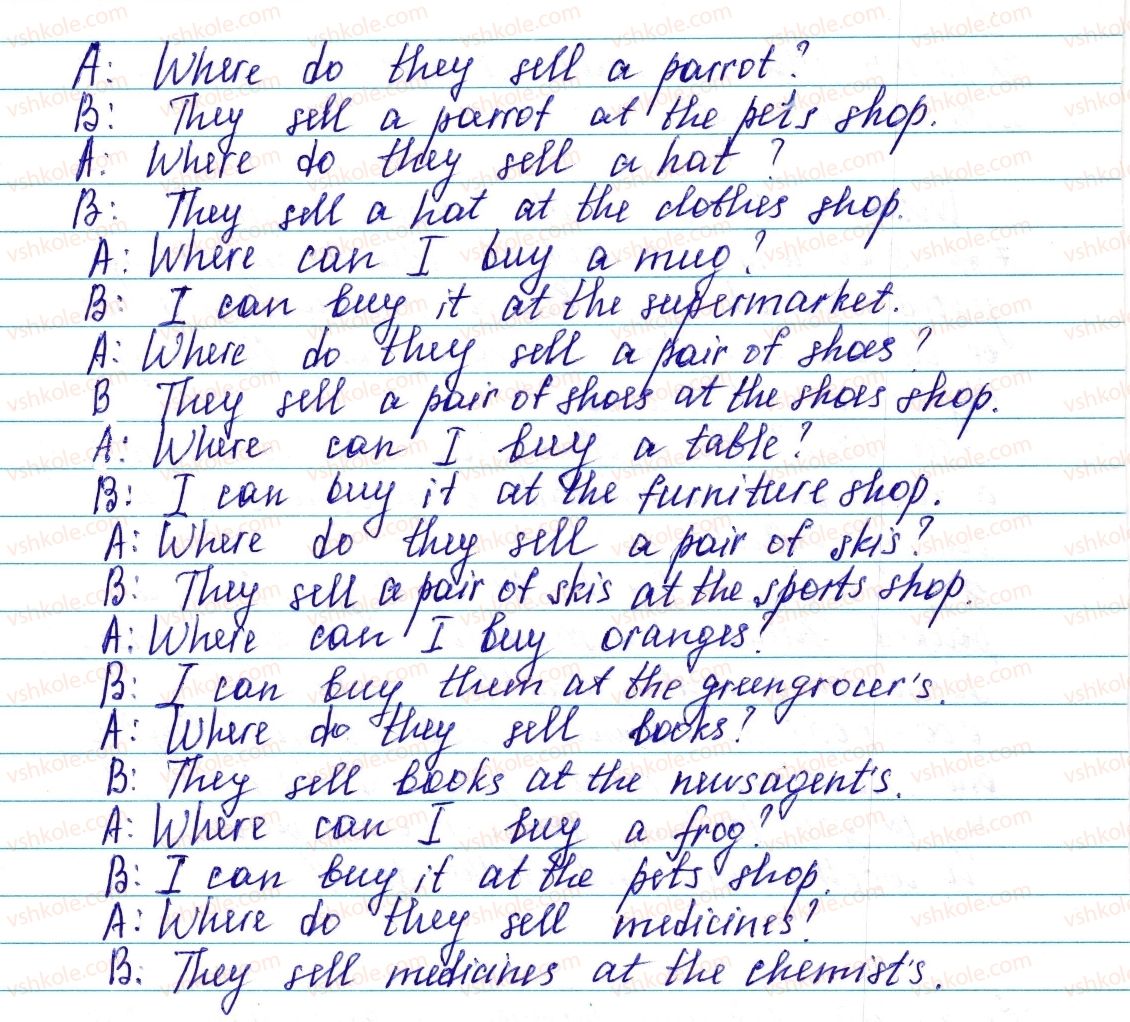 A: Where do they sell a parrot?
B: They sell a parrot at the pets shop.
A: Where do they sell a hat?
B: They sell a hat at the clothes shop.
A: Where can I buy a mug?
B: I can buy it at the supermarket.
A: Where do they sell a pair of shoes?
B They sell a pair of shoes at the shoes shop.
A: Where can I buy a table?
B: I can buy it at the furniture shop.
A: Where do they sell a pair of skis?
B: They sell a pair of skis at the sports shop.
A: Where can I buy oranges?
B: I can buy them at the greengrocer's.
A: Where do they sell books?
B: They sell books at the newsagent's.
A: Where can I buy a frog?
B: I can buy it at the pets shop.
A: Where do they sell medicines?
B: They sell medicines at the chemist's.
vshkole.com